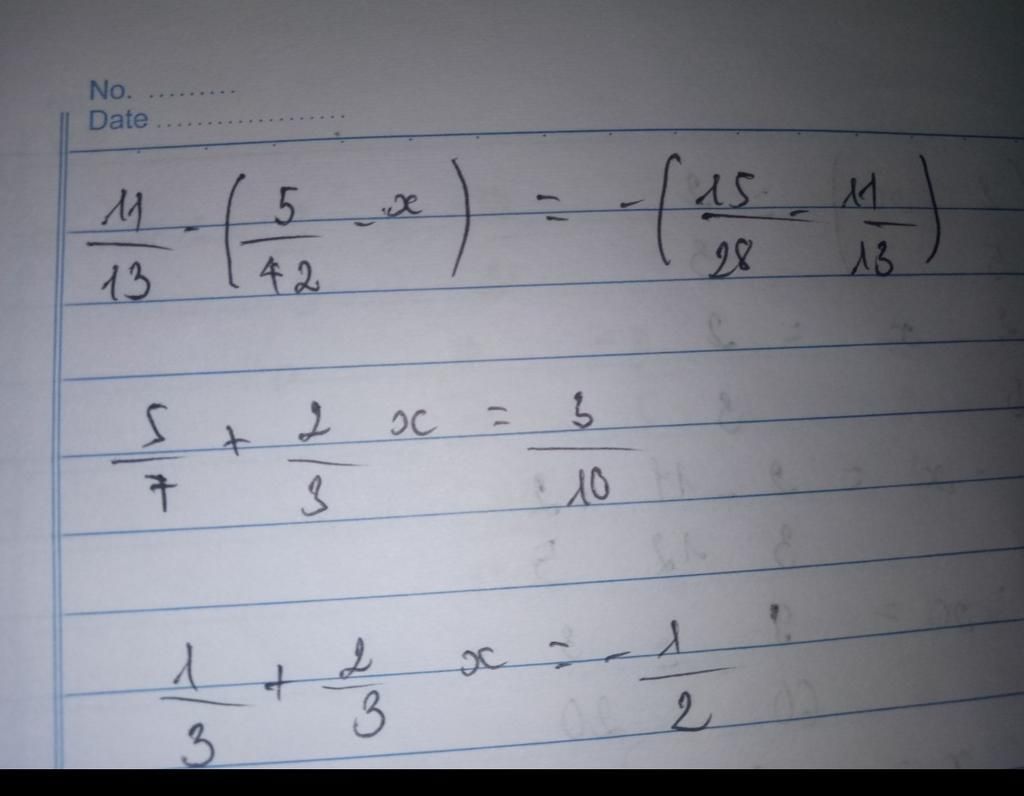 No. .........
Date ...................
11/13 - (5/42 - x) = - (15/28 - 11/13)
5/7 + 2/3 x = 3/10
1/3 + 2/3 x = - 1/2